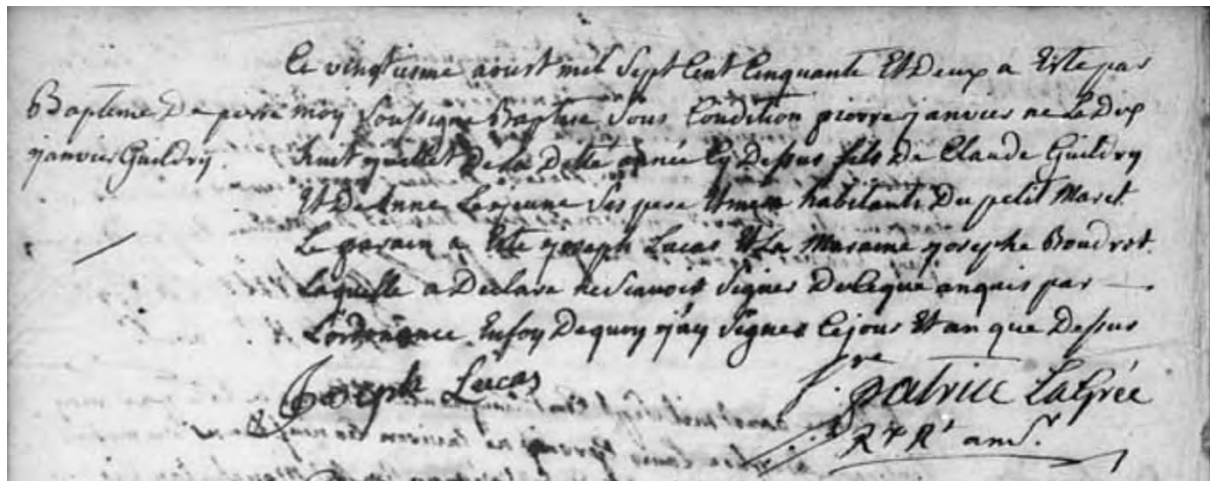 Le vingtiesme aoust mil sept Cent Cinquante Et Deux a Esté par
Bapteme De pierre
moy soussigné Baptisé sous Condition pierre janvier né Le Dix
janvier Guildry
huit juillet De la Ditte année Cy Dessus fils De Claude Guildry
Et De Anne Lejeune Ses pere Et mere habitants Du petit Maret
Le parain a Esté joseph Lucas Et La Maraine josephe Boudrot
Laquelle a Declaré ne Scavoir Signer De Ce que anquis par
L'ordonnance Enfoy Dequoy j'ay Signez Ce jour Et an que Dessus
Joseph Lucas
f. patrice LaGrée
Rt Rt